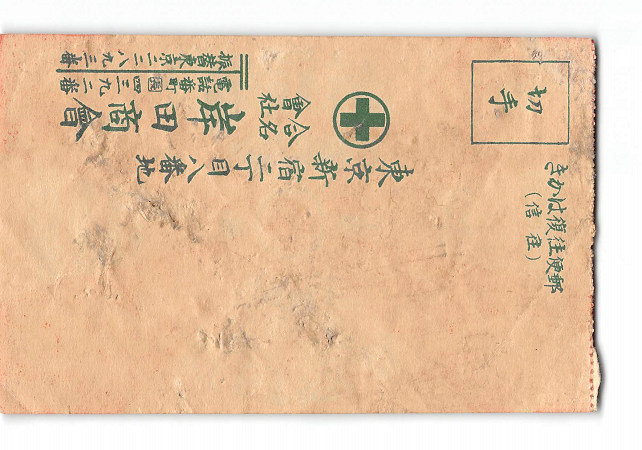 郵便往復はかき
(往信)
切手
東京新宿二丁目八番地
合名
會社
岸田商會
電話番町四三九二番
振替東京二二八九三番